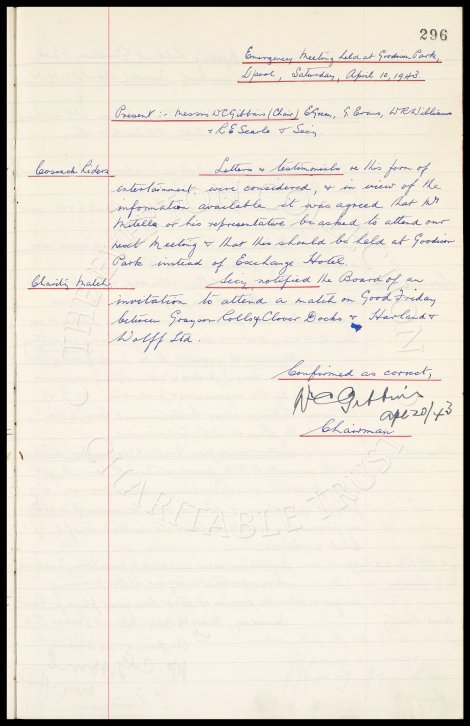 296
Emergency Meeting held at Goodison Park,
L'pool, Saturday, April 10, 1943.
Present :- Messrs W C Gibbins (Chair) E Green, G. Evans, W R Williams
& R E Searle & Secy.
Cossack Riders Letters & testimonials re this form of
entertainment were considered, & in view of the
information available it was agreed that Mr
or his representative be asked to attend our
next Meeting & that this should be held at Goodison
Park instead of Exchange Hotel.
Charity Match Secy notified the Board of an
invitation to attend a match on Good Friday
between Grayson Rollo & Clover Docks & Harland &
Wolff Ltd.
Confirmed as correct,
W C Gibbins
Apl 20/43
Chairman
CHARITABLE TRUST